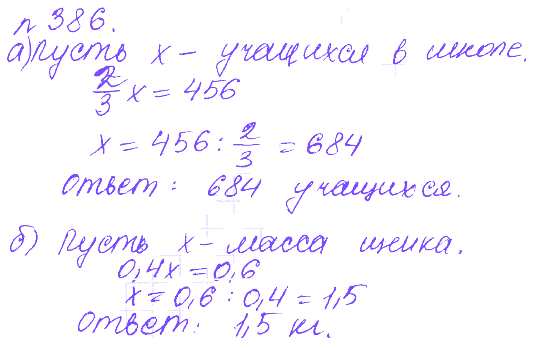 №386.
а) Пусть x – учащихся в школе.
2/3 x = 456
x = 456 : 2/3 = 684
Ответ: 684 учащихся.
б) Пусть x – масса щенка.
0,4x = 0,6
x = 0,6 : 0,4 = 1,5
Ответ: 1,5 кг.